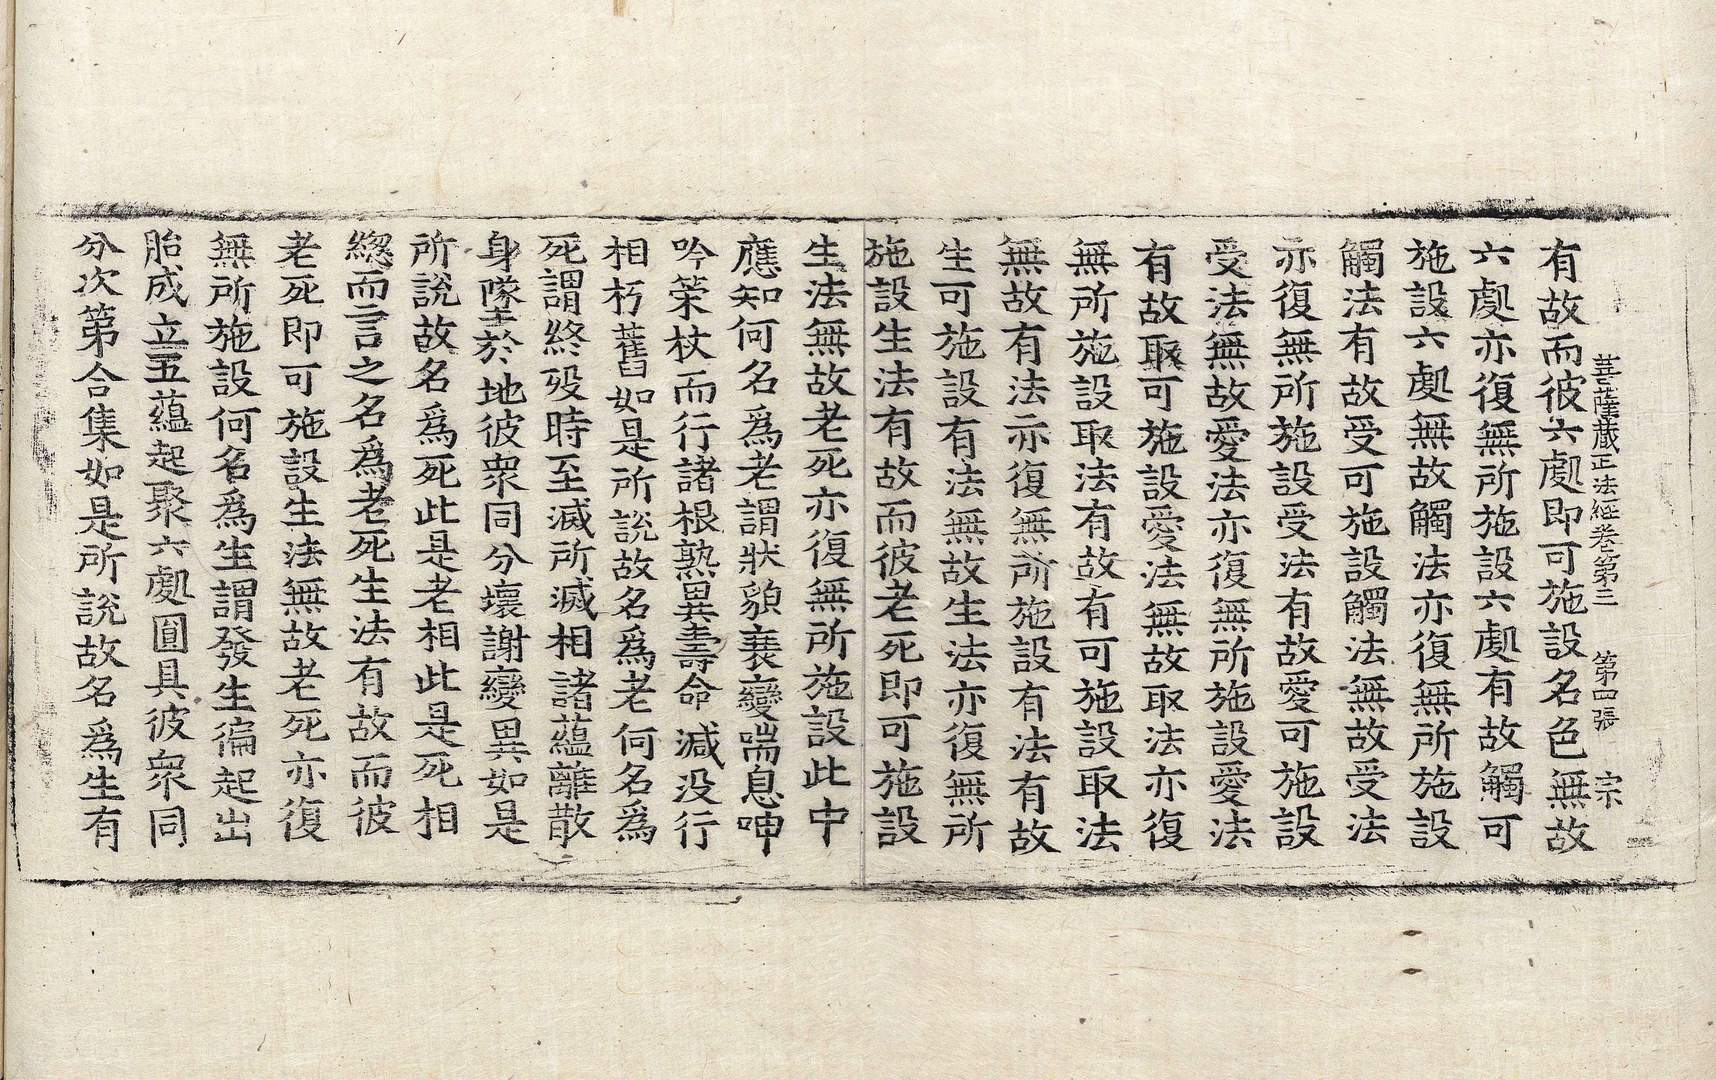 菩薩藏正法經卷第三　第四張　宗
有故而彼六處即可施設名色無故
六處亦復無所施設六處有故觸可
施設六處無故觸法亦復無所施設
觸法有故受可施設觸法無故受法
亦復無所施設受法有故愛可施設
受法無故愛法亦復無所施設愛法
有故取可施設愛法無故取法亦復
無所施設取法有故有可施設取法
無故有法亦復無所施設有法有故
生可施設有法無故生法亦復無所
施設生法有故而彼老死即可施設
生法無故老死亦復無所施設此中
應知何名爲老謂狀貌衰變喘息呻
吟策杖而行諸根熟異壽命減没行
相朽舊如是所說故名爲老何名爲
死謂終歿時至滅所滅相諸蘊離散
身墜於地彼衆同分壞謝變異如是
所說故名爲死此是老相此是死相
緫而言之名爲老死生法有故而彼
老死即可施設生法無故老死亦復
無所施設何名爲生謂發生徧起出
胎成立五蘊起聚六處圓具彼衆同
分次第合集如是所說故名爲生有